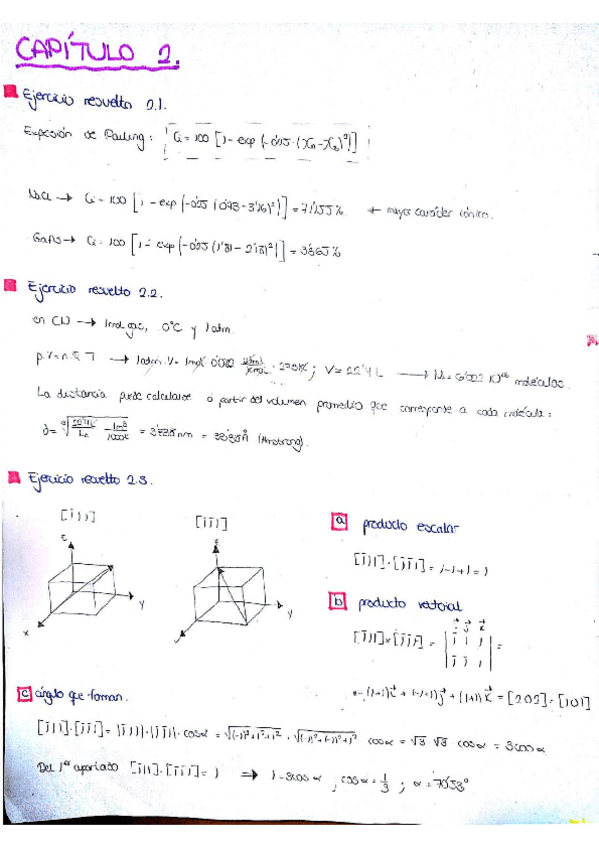 CAPÍTULO 2.
Ejercicio resuelto 2.1.
Expresión de Pauling: Ci = 100 [1 - exp (-0'25 · (X1 - X2)²)]
NaCl → Ci = 100 [1 - exp (-0'25 (0'93 - 3'16)²)] = 71'155 % + mayor carácter iónico.
GaAs → Ci = 100 [1 - exp (-0'25 (1'81 - 2'18)²)] =
Ejercicio resuelto 2.2.
en CN → 1mol gas, 0°C y 1atm.
p.V = n.R.T → 1atm. V = 1mol 0'082 · 273K ; V = 22'4 L → moléculas.
La distancia puede calcularse a partir del volumen promedio que corresponde a cada molécula:
(Amstrong).
Ejercicio resuelto 2.3.
[1̄11] [1̄1̄1]
z z
y y
x
a producto escalar
[1̄11]·[1̄1̄1] = 1-1+1 = 1
b producto vectorial
[1̄11]×[1̄1̄1] =
= [202] = [101]
c ángulo que forman.
[1̄11]·[1̄1̄1] = |1̄11|·|1̄1̄1|· cos α = √((-1)²+1²+1²) · √((-1)²+(-1)²+1²) cos α = √3 · √3 cos α = 3cos α
Del 1er apartado [1̄11]·[1̄1̄1] = 1 ⟹ 1 = 3cos α , cos α = 1/3 ; α = 70'53°